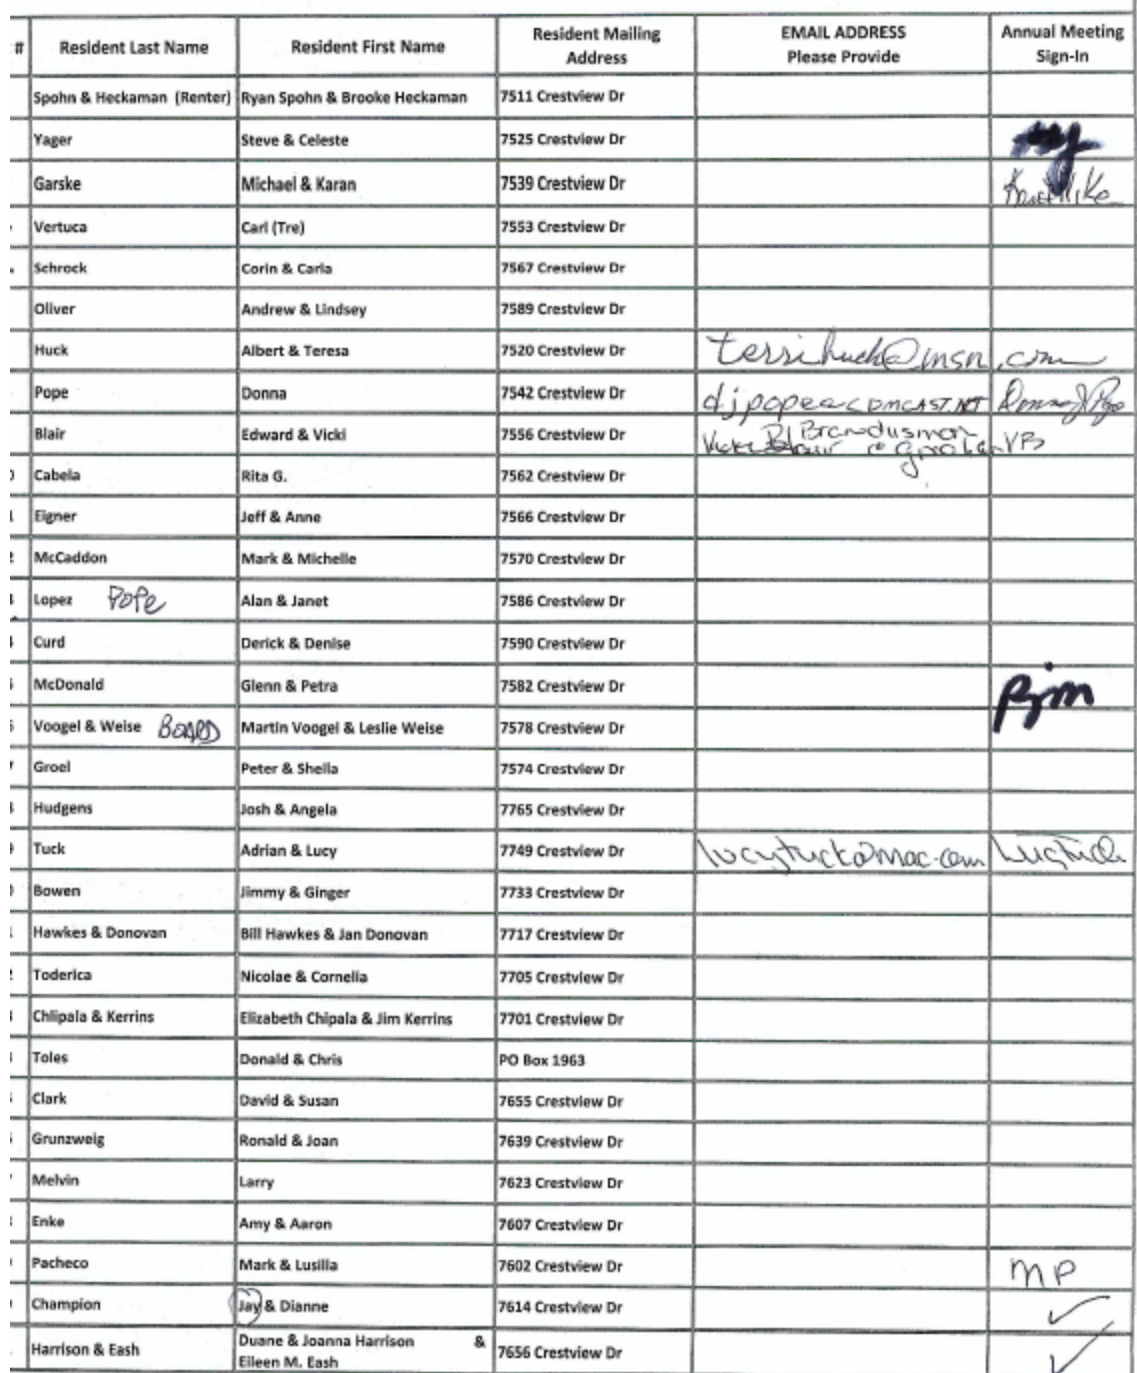 # Resident Last Name Resident First Name Resident Mailing Address EMAIL ADDRESS Please Provide Annual Meeting Sign-In
Spohn & Heckaman (Renter) Ryan Spohn & Brooke Heckaman 7511 Crestview Dr
Yager Steve & Celeste 7525 Crestview Dr
Garske Michael & Karan 7539 Crestview Dr
Vertuca Carl (Tre) 7553 Crestview Dr
Schrock Corin & Carla 7567 Crestview Dr
Oliver Andrew & Lindsey 7589 Crestview Dr
Huck Albert & Teresa 7520 Crestview Dr terrihuck@msn.com
Pope Donna 7542 Crestview Dr djpope@comcast.net Donna J Pope
Blair Edward & Vicki 7556 Crestview Dr VB
Cabela Rita G. 7562 Crestview Dr
Eigner Jeff & Anne 7566 Crestview Dr
McCaddon Mark & Michelle 7570 Crestview Dr
Lopez Pope Alan & Janet 7586 Crestview Dr
Curd Derick & Denise 7590 Crestview Dr
McDonald Glenn & Petra 7582 Crestview Dr pjm
Voogel & Weise BOARD Martin Voogel & Leslie Weise 7578 Crestview Dr
Groel Peter & Shella 7574 Crestview Dr
Hudgens Josh & Angela 7765 Crestview Dr
Tuck Adrian & Lucy 7749 Crestview Dr lucytuck@mac.com
Bowen Jimmy & Ginger 7733 Crestview Dr
Hawkes & Donovan Bill Hawkes & Jan Donovan 7717 Crestview Dr
Toderica Nicolae & Cornelia 7705 Crestview Dr
Chlipala & Kerrins Elizabeth Chipala & Jim Kerrins 7701 Crestview Dr
Toles Donald & Chris PO Box 1963
Clark David & Susan 7655 Crestview Dr
Grunzweig Ronald & Joan 7639 Crestview Dr
Melvin Larry 7623 Crestview Dr
Enke Amy & Aaron 7607 Crestview Dr
Pacheco Mark & Lusilla 7602 Crestview Dr MP
Champion Jay & Dianne 7614 Crestview Dr ✓
Harrison & Eash Duane & Joanna Harrison & Eileen M. Eash 7656 Crestview Dr ✓